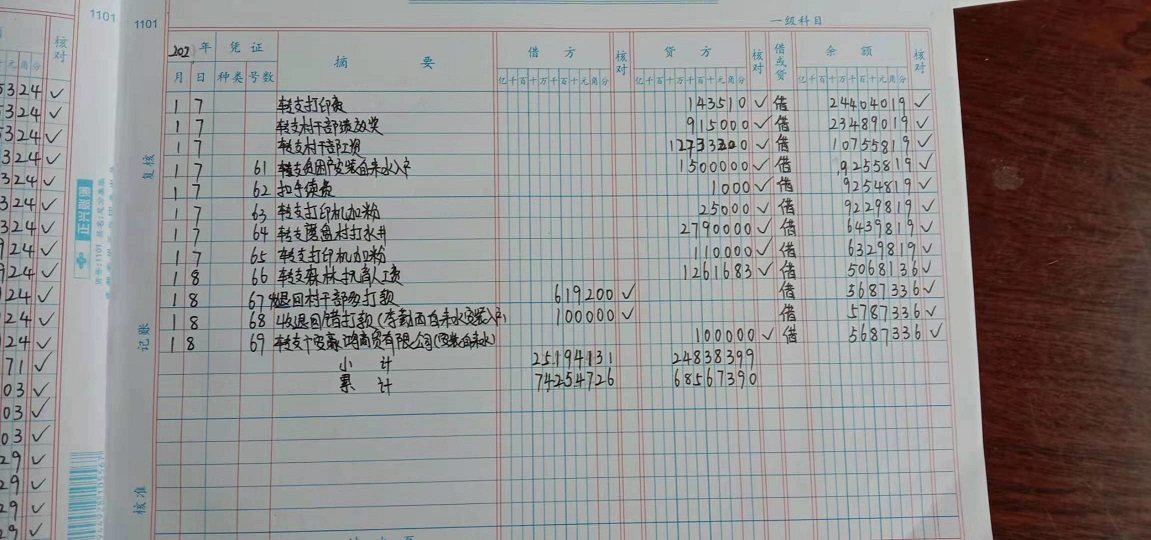 1101
1101
一级科目
核对
复核
记账
核准
正兴账簿
2021 年 凭证 摘 要 借 方 核对 贷 方 核对 借或贷 余 额 核对
月 日 种类 号数 亿千百十万千百十元角分 亿千百十万千百十元角分 亿千百十万千百十元角分
1 7 转支打印费 143510 ✓ 借 24404019 ✓
1 7 转支村干部绩效奖 915000 ✓ 借 23489019 ✓
1 7 转支村干部工资 12733200 ✓ 借 10755819 ✓
1 7 61 转支贫困户安装自来水入户 1500000 ✓ 借 9255819 ✓
1 7 62 扣手续费 1000 ✓ 借 9254819 ✓
1 7 63 转支打印机加粉 25000 ✓ 借 9229819 ✓
1 7 64 转支磨盘村打水井 2790000 ✓ 借 6439819 ✓
1 7 65 转支打印机加粉 110000 ✓ 借 6329819 ✓
1 8 66 转支森林抚育人工费 1261683 ✓ 借 5068136 ✓
1 8 67 收退回村干部多打款 619200 ✓ 借 5687336 ✓
1 8 68 收退回错打款(李勤西自来水安装入户) 100000 ✓ 借 5787336 ✓
1 8 69 转支 商贸有限公司(安装自来水) 100000 ✓ 借 5687336 ✓
小 计 25194131 24838399
累 计 74254726 68567390
5324 ✓
5324 ✓
5324 ✓
324 ✓
324 ✓
324 ✓
324 ✓
924 ✓
924 ✓
24 ✓
24 ✓
24 ✓
71 ✓
03 ✓
03 ✓
03 ✓
29 ✓
29 ✓
29 ✓
29 ✓